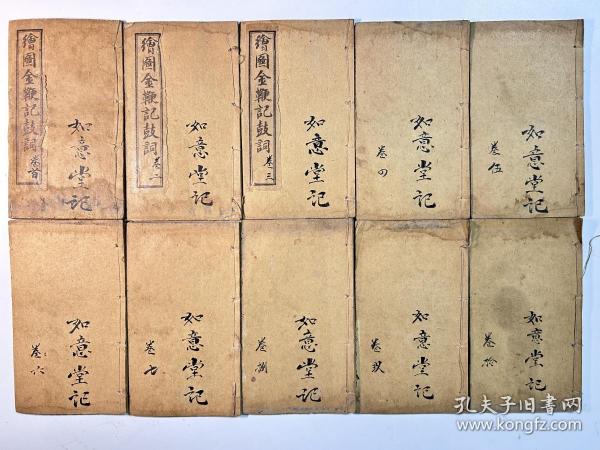 繪圖金鞭記鼓詞
卷首
如意堂記
繪圖金鞭記鼓詞
卷二
如意堂記
繪圖金鞭記鼓詞
卷三
如意堂記
卷四
如意堂記
卷伍
如意堂記
卷六
如意堂記
卷七
如意堂記
卷捌
如意堂記
卷玖
如意堂記
卷拾
如意堂記
孔夫子旧书网
www.kongfz.com